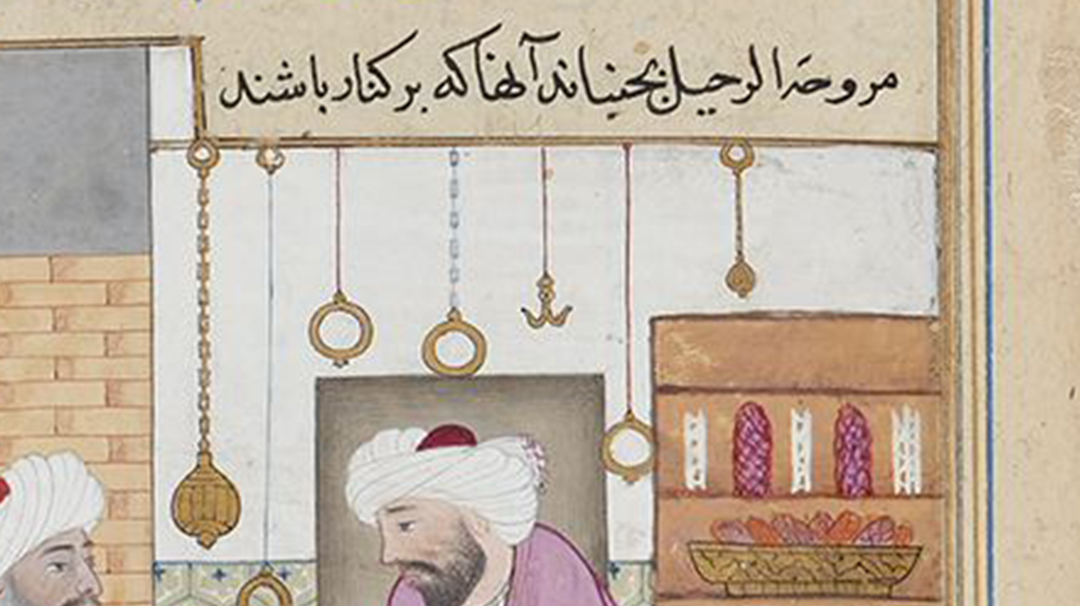 مروحة الرحیل بجنبانند آنها که بر کنار باشند